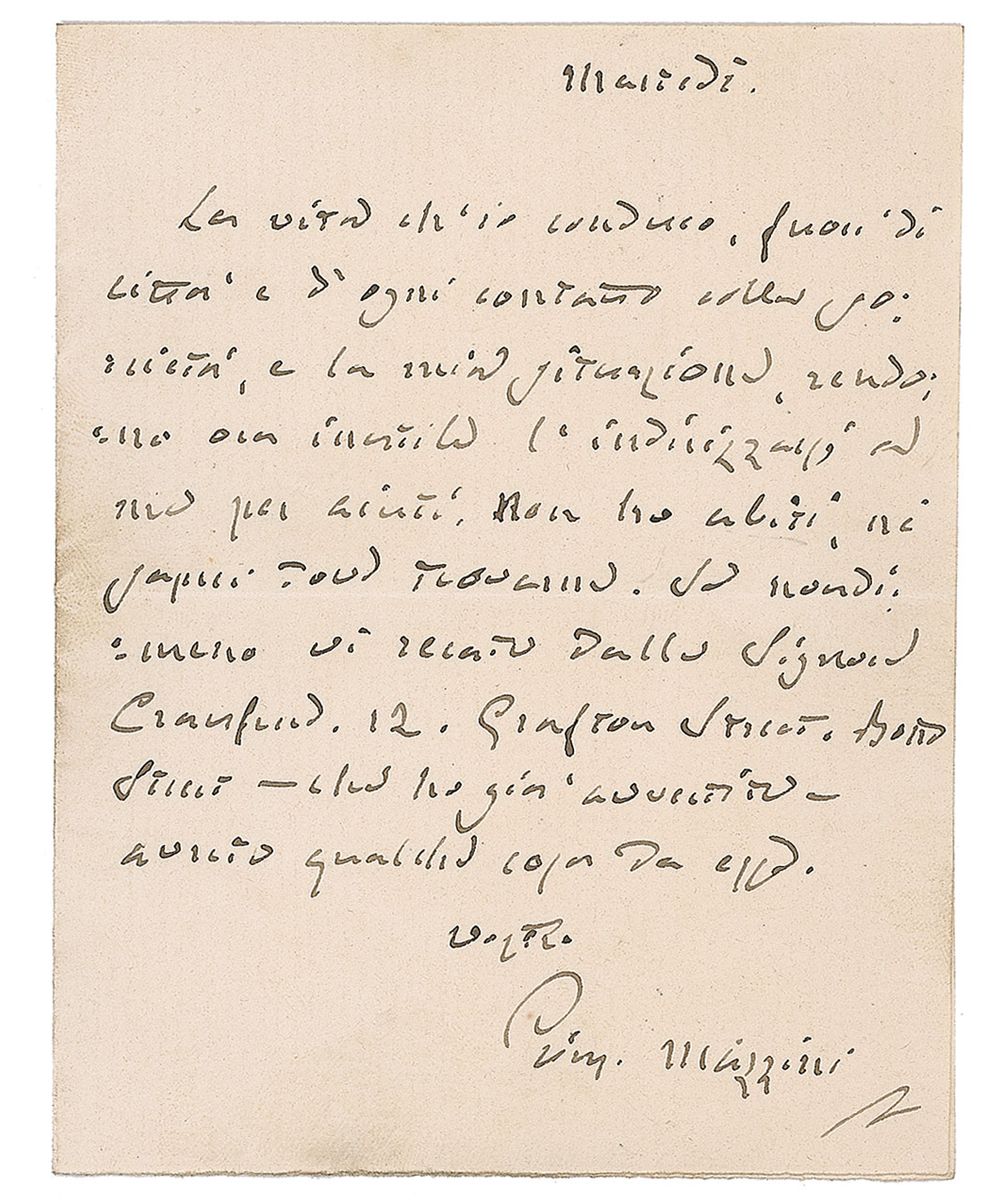 Martedì.
La vita ch'io conduco, fuori di
città e d'ogni contatto colla so:
:cietà, e la mia situazione, rendo:
:no ora inutile l'indirizzarsi a
me per aiuti. Non ho abiti, nè
saprei dove trovarne. Se nondi:
:meno vi recate dalla Signora
Craufurd. 12. Grafton Street. Bond
Street — che ho già avvertita —
avrete qualche cosa da essa.
vostro
Gius. Mazzini